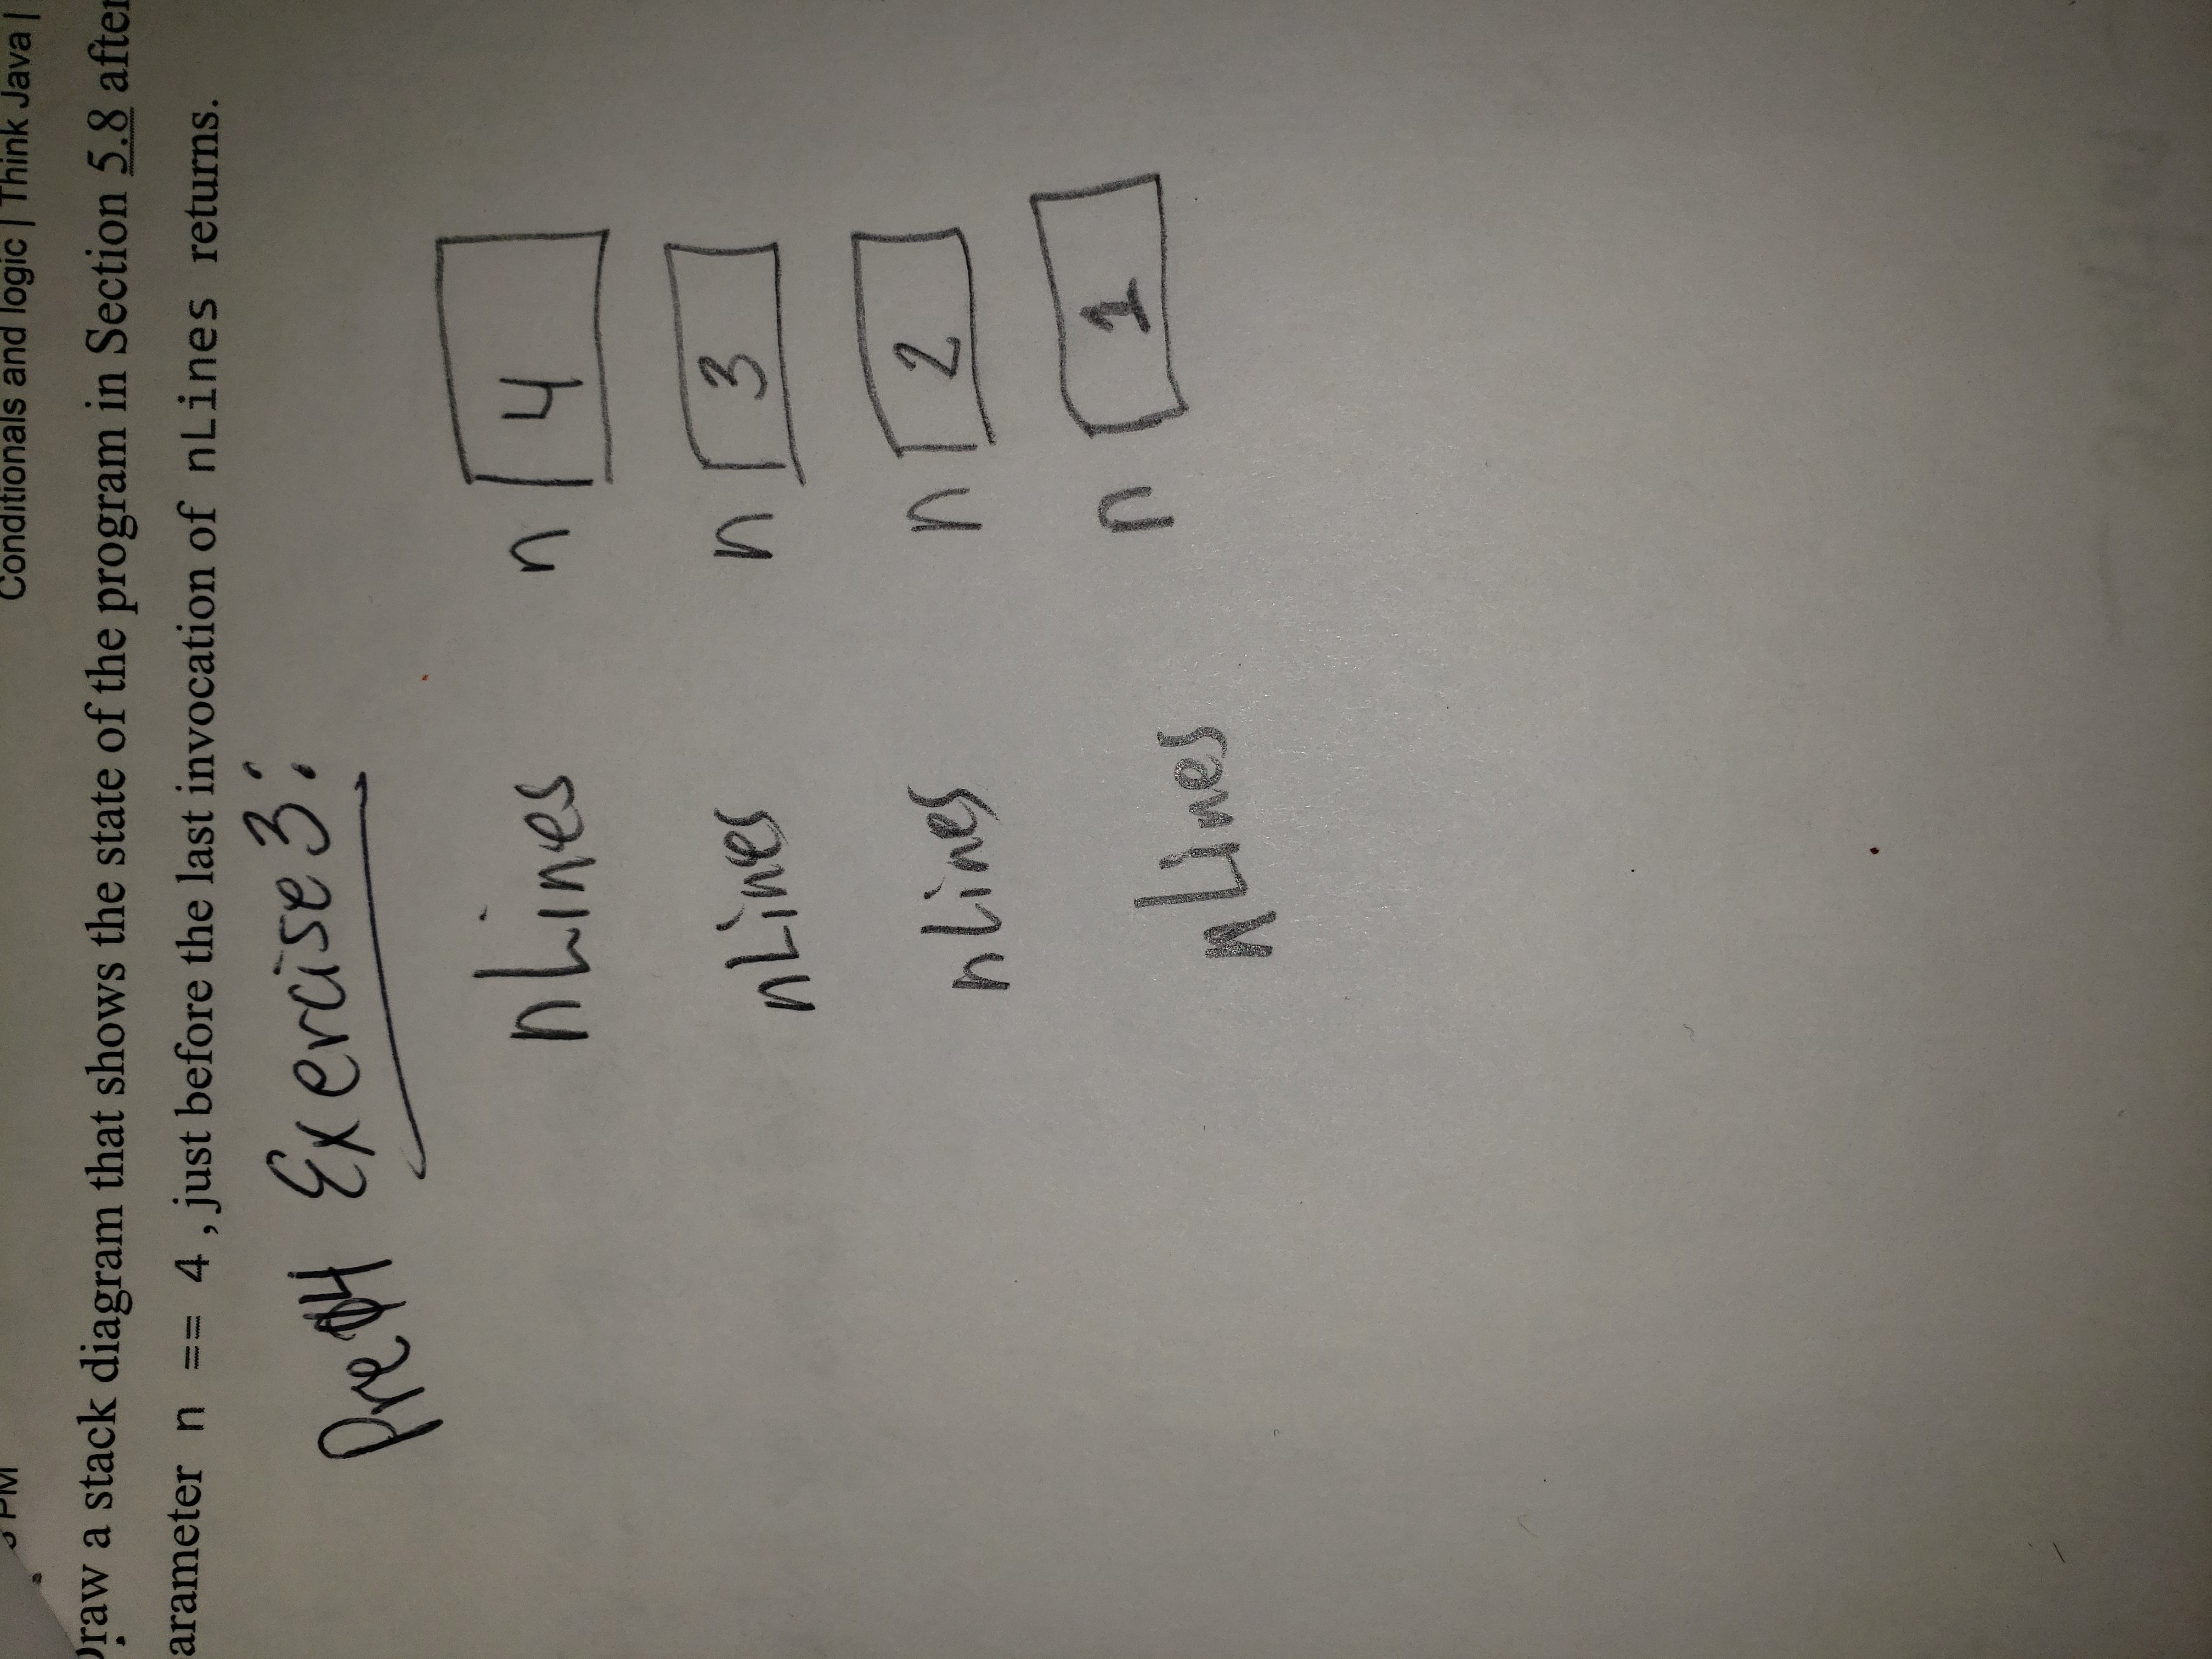 PM
Conditionals and logic | Think Java |
Draw a stack diagram that shows the state of the program in Section 5.8 after
arameter n == 4 , just before the last invocation of nLines returns.
Exercise 3:
nLines n 4
nLines n 3
nLines n 2
nLines n 1